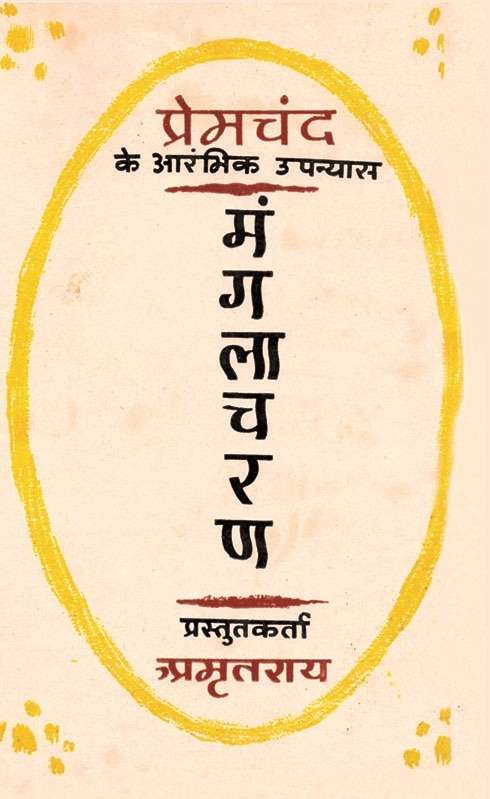 प्रेमचंद
के आरंभिक उपन्यास
मं
ग
ला
च
र
ण
प्रस्तुतकर्ता
अमृतराय